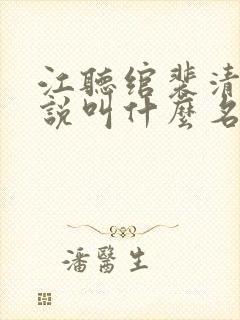 江聽綰裴清
說叫什麼名
潘醫生